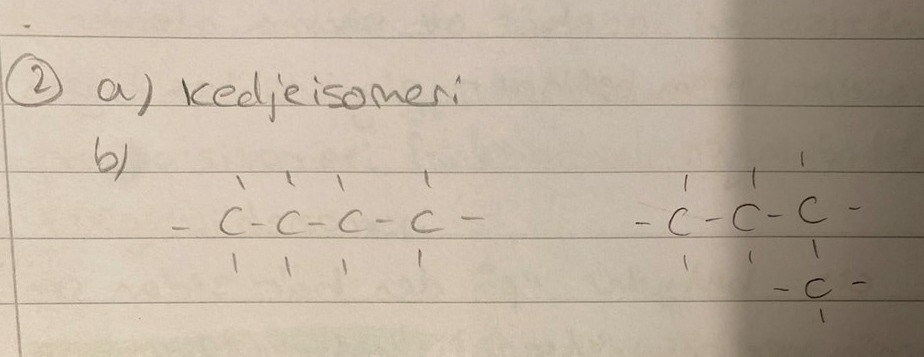 ② a) Kedjeisomeri
b)
- C - C - C - C -
- C - C - C -
- C -